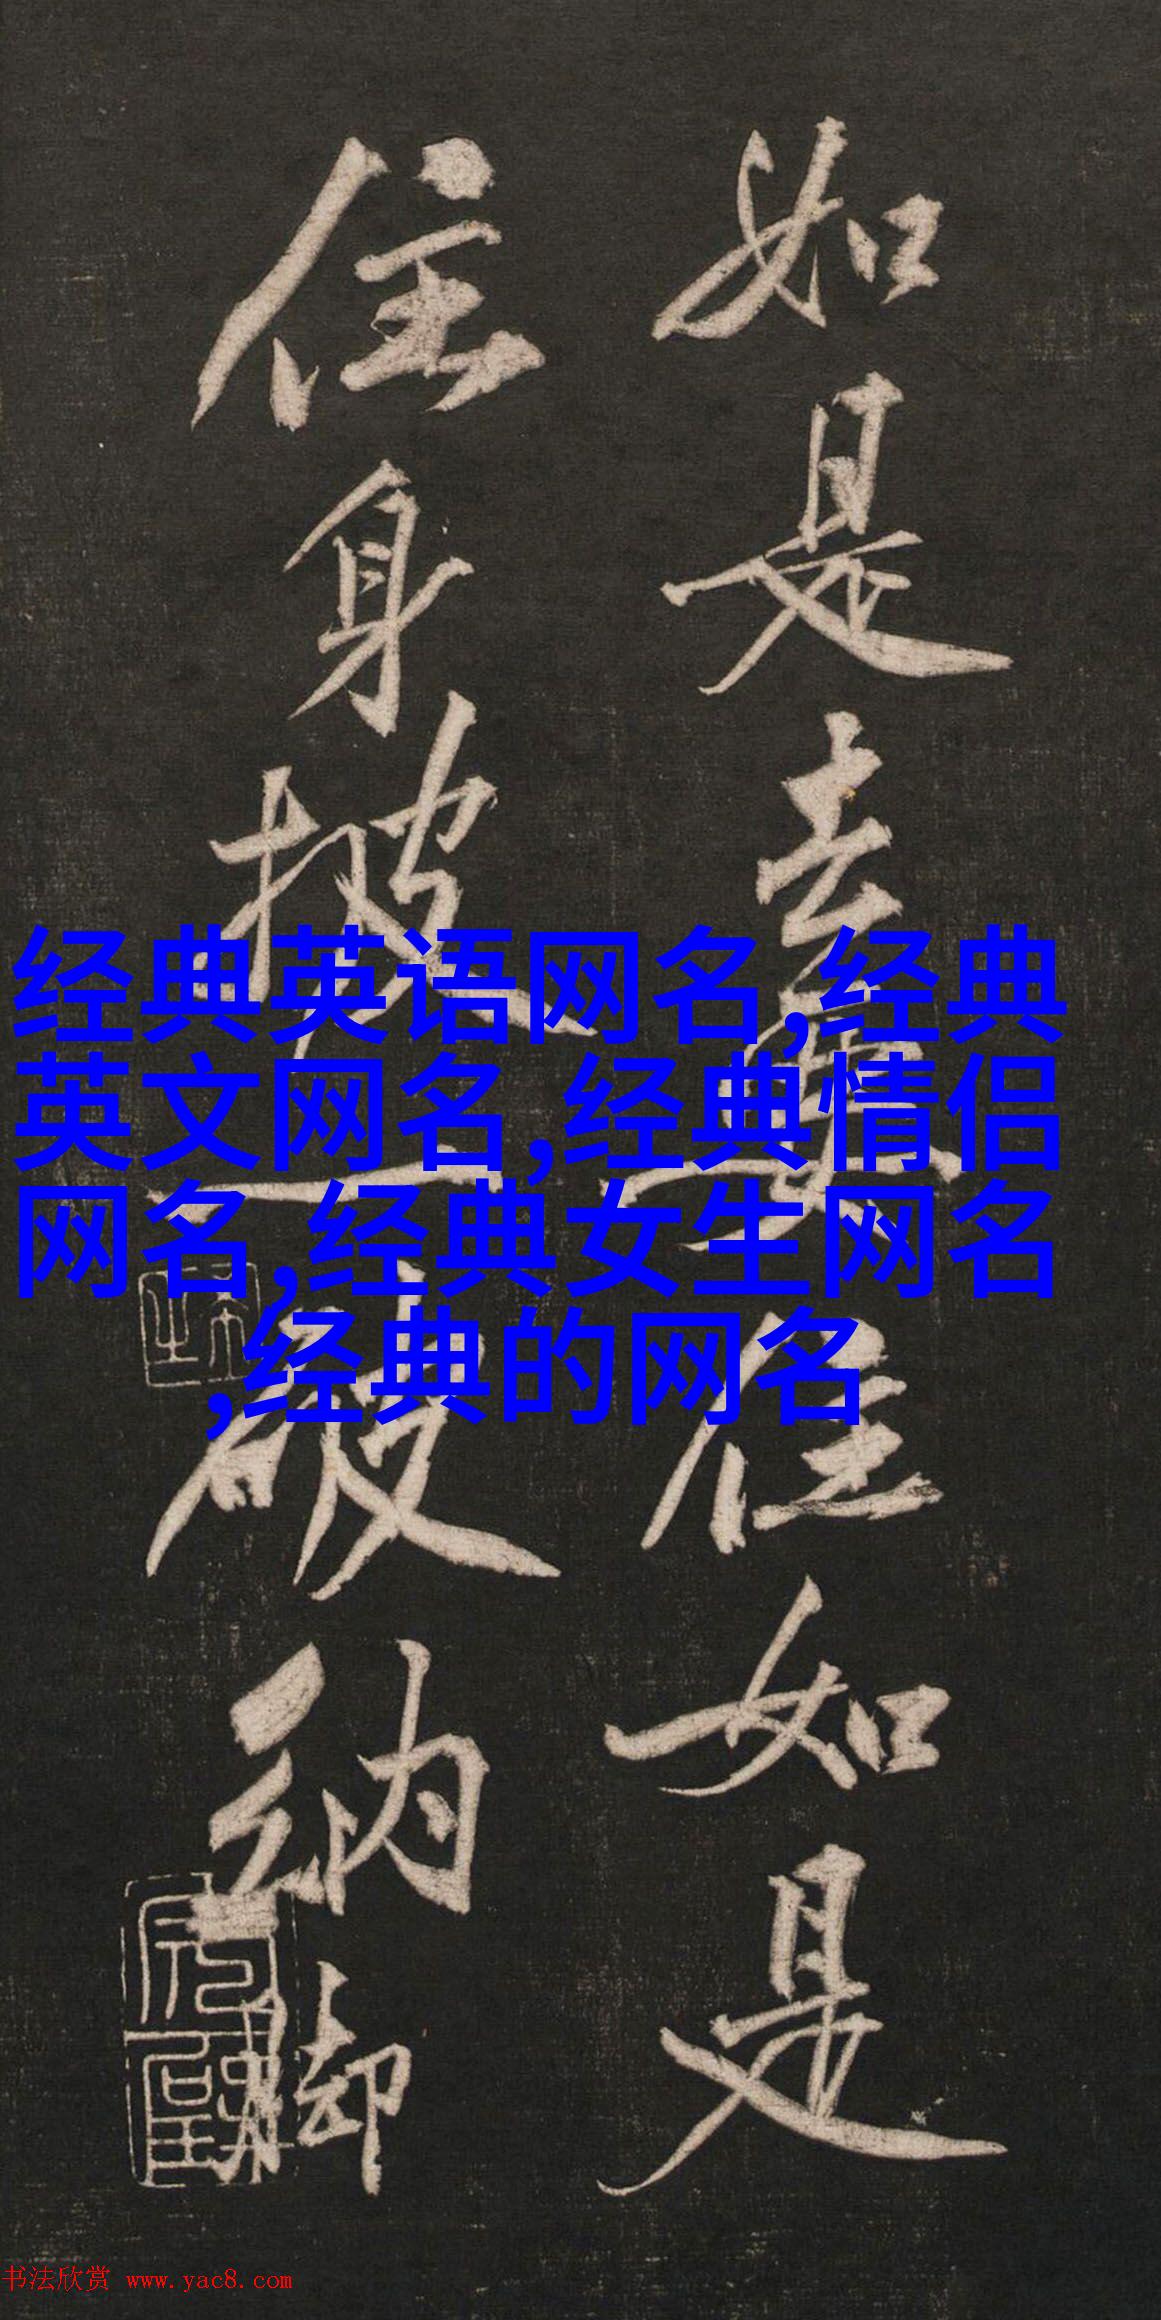 如是去来住如是
住身披一破衲脚
经典英语网名,经典
英文网名,经典情侣
网名,经典女生网名
,经典的网名
书法欣赏 www.yac8.com